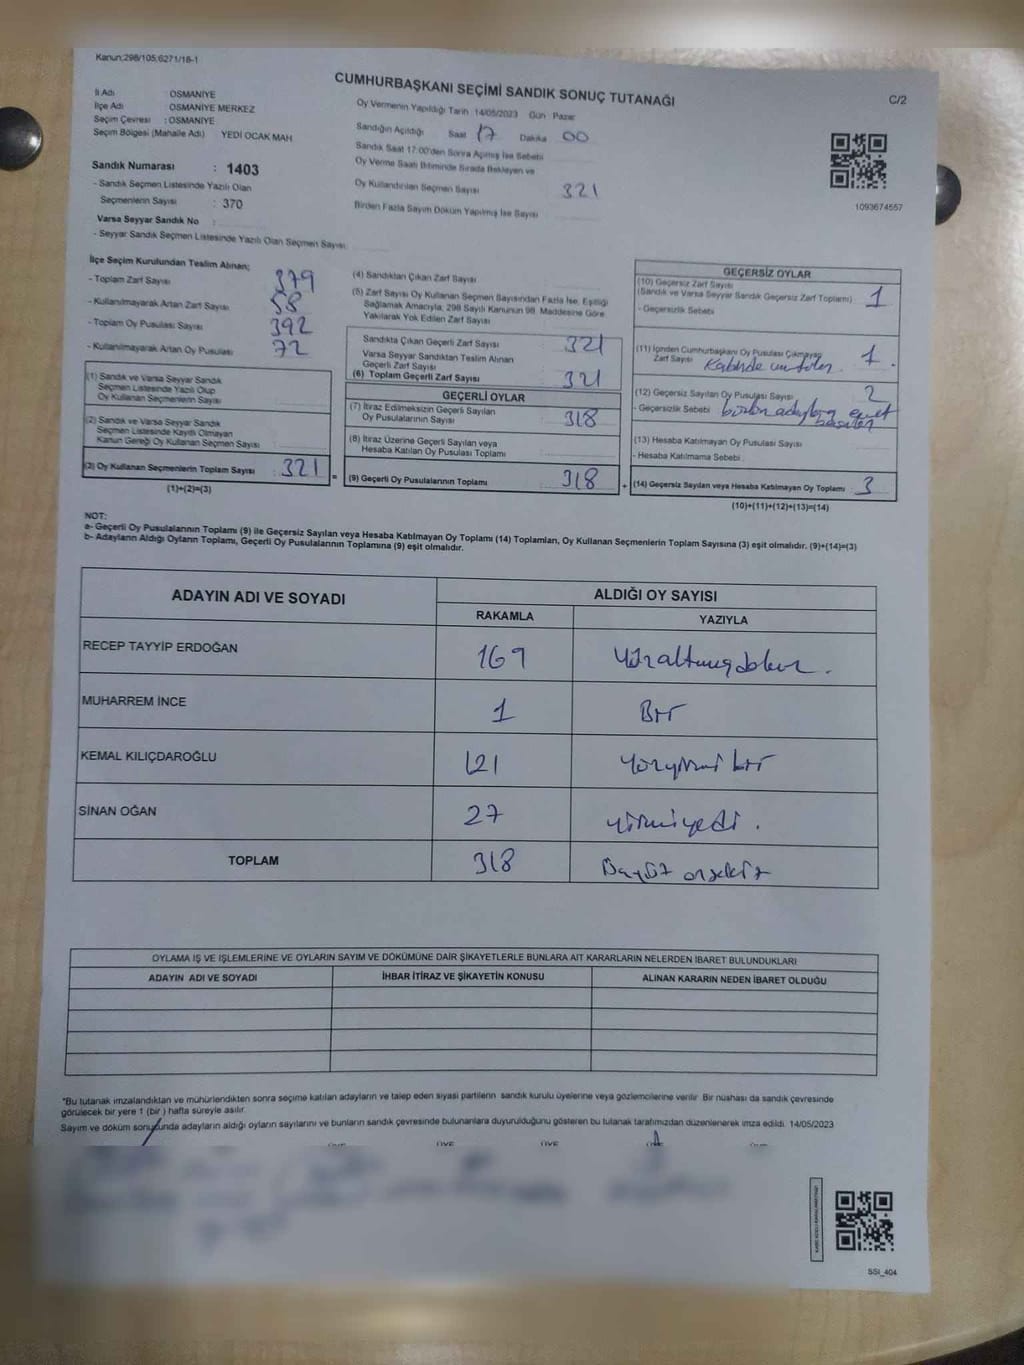 Kanun;298/105;6271/18-1
CUMHURBAŞKANI SEÇİMİ SANDIK SONUÇ TUTANAĞI
C/2
İl Adı : OSMANİYE
İlçe Adı OSMANİYE MERKEZ
Seçim Çevresi : OSMANİYE
Seçim Bölgesi (Mahalle Adı) YEDİ OCAK MAH
Oy Vermenin Yapıldığı Tarih 14/05/2023 Gün Pazar
Sandığın Açıldığı Saat 17 Dakika 00
Sandık Saat 17:00'den Sonra Açımış İse Sebebi
Oy Verme Saati Bitiminde Sırada Bekleyen ve
Oy Kullandırılan Seçmen Sayısı 321
Birden Fazla Sayım Döküm Yapılmış İse Sayısı
1093674557
Sandık Numarası : 1403
- Sandık Seçmen Listesinde Yazılı Olan
Seçmenlerin Sayısı : 370
Varsa Seyyar Sandık No :
- Seyyar Sandık Seçmen Listesinde Yazılı Olan Seçmen Sayısı:
İlçe Seçim Kurulundan Teslim Alınan;
- Toplam Zarf Sayısı 379
- Kullanılmayarak Artan Zarf Sayısı 58
- Toplam Oy Pusulası Sayısı 392
- Kullanılmayarak Artan Oy Pusulası 72
(1) Sandık ve Varsa Seyyar Sandık
Seçmen Listesinde Yazılı Olup
Oy Kullanan Seçmenlerin Sayısı
(2) Sandık ve Varsa Seyyar Sandık
Seçmen Listesinde Kayıtlı Olmayan
Kanun Gereği Oy Kullanan Seçmen Sayısı
(3) Oy Kullanan Seçmenlerin Toplam Sayısı : 321 =
(1)+(2)=(3)
(4) Sandıktan Çıkan Zarf Sayısı
(5) Zarf Sayısı Oy Kullanan Seçmen Sayısından Fazla İse, Eşitliği
Sağlamak Amacıyla, 298 Sayılı Kanunun 98. Maddesine Göre
Yakılarak Yok Edilen Zarf Sayısı
Sandıkta Çıkan Geçerli Zarf Sayısı 321
Varsa Seyyar Sandıktan Teslim Alınan
Geçerli Zarf Sayısı
(6) Toplam Geçerli Zarf Sayısı 321
GEÇERLİ OYLAR
(7) İtiraz Edilmeksizin Geçerli Sayılan
Oy Pusulalarının Sayısı 318
(8) İtiraz Üzerine Geçerli Sayılan veya
Hesaba Katılan Oy Pusulası Toplamı
(9) Geçerli Oy Pusulalarının Toplamı 318 +
GEÇERSİZ OYLAR
(10) Geçersiz Zarf Sayısı
(Sandık ve Varsa Seyyar Sandık Geçersiz Zarf Toplamı) 1
- Geçersizlik Sebebi
(11) İçinden Cumhurbaşkanı Oy Pusulası Çıkmayan
Zarf Sayısı 1
(12) Geçersiz Sayılan Oy Pusulası Sayısı 2
- Geçersizlik Sebebi
(13) Hesaba Katılmayan Oy Pusulası Sayısı
- Hesaba Katılmama Sebebi
(14) Geçersiz Sayılan veya Hesaba Katılmayan Oy Toplamı : 3
(10)+(11)+(12)+(13)=(14)
NOT:
a- Geçerli Oy Pusulalarının Toplamı (9) ile Geçersiz Sayılan veya Hesaba Katılmayan Oy Toplamı (14) Toplamları, Oy Kullanan Seçmenlerin Toplam Sayısına (3) eşit olmalıdır. (9)+(14)=(3)
b- Adayların Aldığı Oyların Toplamı, Geçerli Oy Pusulalarının Toplamına (9) eşit olmalıdır.
ADAYIN ADI VE SOYADI ALDIĞI OY SAYISI
RAKAMLA YAZIYLA
RECEP TAYYİP ERDOĞAN 169 Yüzaltmışdokuz.
MUHARREM İNCE 1 Bir
KEMAL KILIÇDAROĞLU 121 Yüzyirmi bir
SİNAN OĞAN 27 yirmiyedi.
TOPLAM 318 onsekiz
OYLAMA İŞ VE İŞLEMLERİNE VE OYLARIN SAYIM VE DÖKÜMÜNE DAİR ŞİKAYETLERLE BUNLARA AİT KARARLARIN NELERDEN İBARET BULUNDUKLARI
ADAYIN ADI VE SOYADI İHBAR İTİRAZ VE ŞİKAYETİN KONUSU ALINAN KARARIN NEDEN İBARET OLDUĞU
*Bu tutanak imzalandıktan ve mühürlendikten sonra seçime katılan adayların ve talep eden siyasi partilerin sandık kurulu üyelerine veya gözlemcilerine verilir. Bir nüshası da sandık çevresinde
görülecek bir yere 1 (bir) hafta süreyle asılır.
Sayım ve döküm sonucunda adayların aldığı oyların sayılarını ve bunların sandık çevresinde bulunanlara duyurulduğunu gösteren bu tutanak tarafımızdan düzenlenerek imza edildi. 14/05/2023
SSI_404